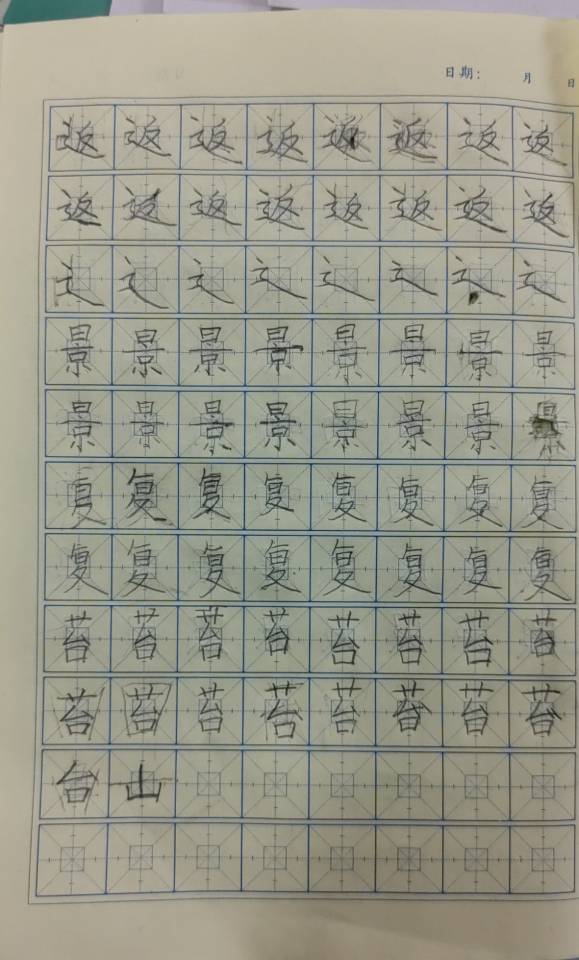 日期: 月 日
返返返返返返返返
返返返返返返返返
辶辶辶辶辶辶辶辶
景景景景景景景景
景景景景景景景景
复复复复复复复复
复复复复复复复复
苔苔苔苔苔苔苔苔
苔苔苔苔苔苔苔苔
台山